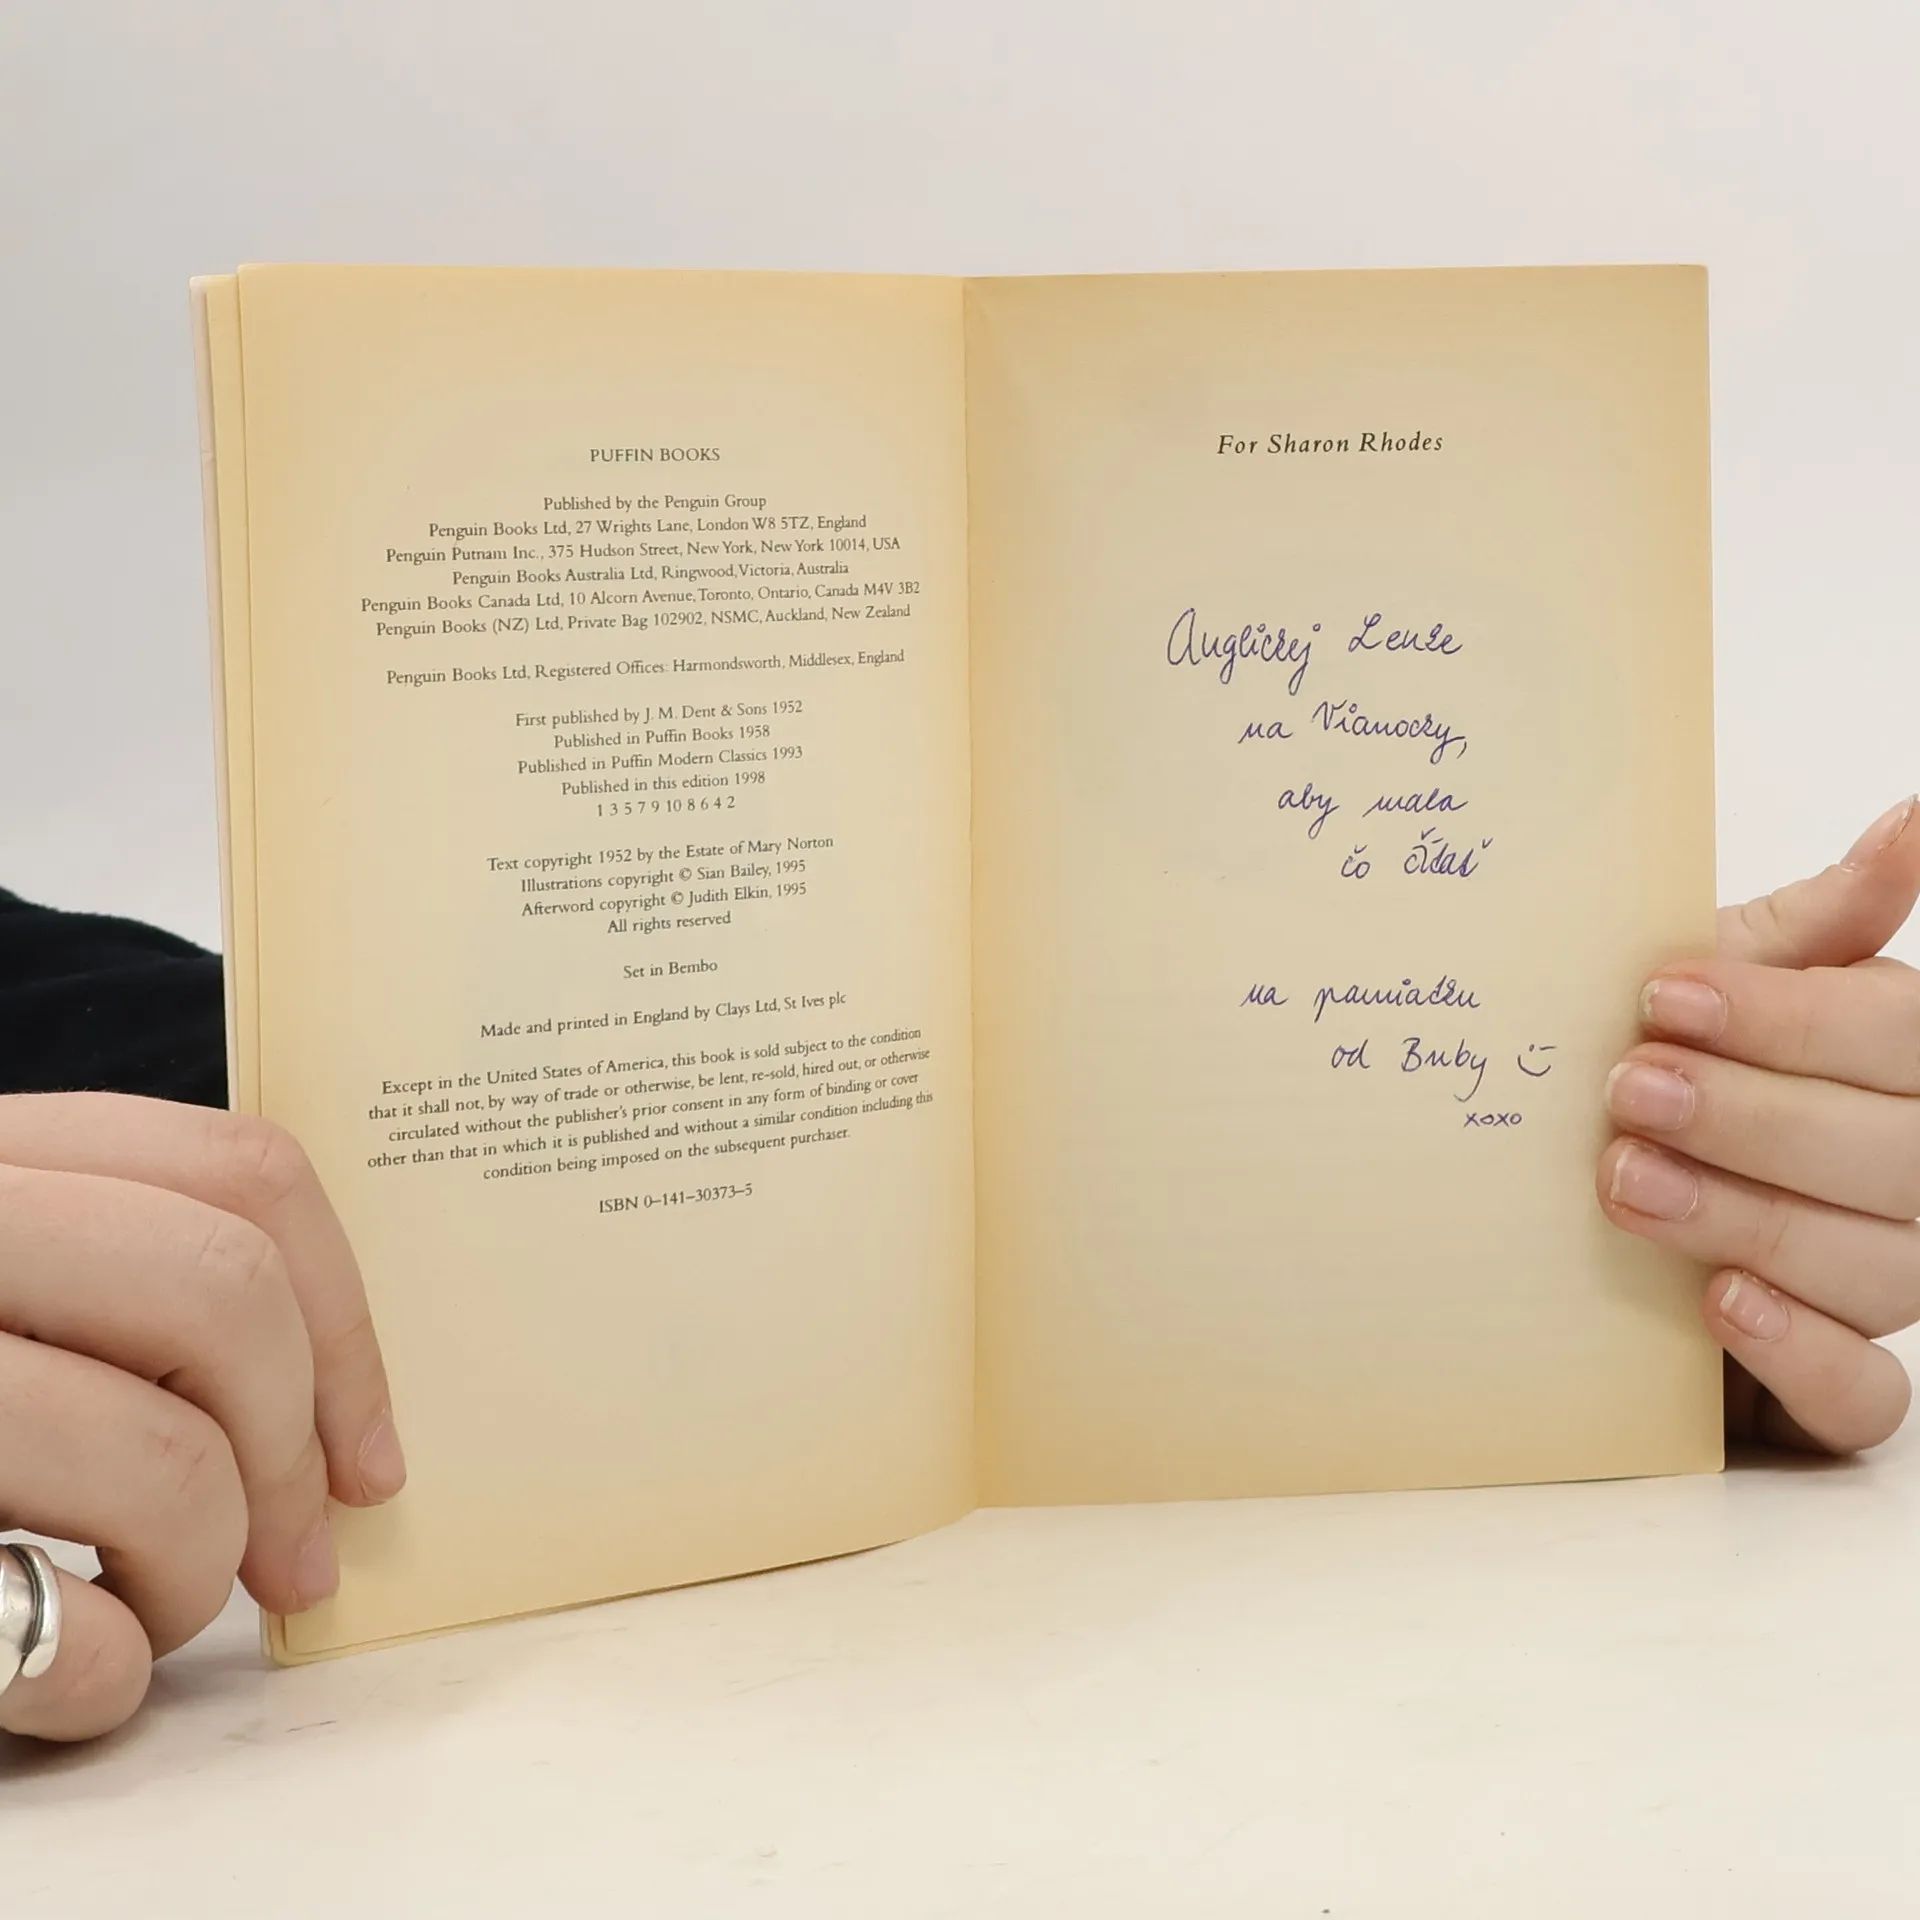 PUFFIN BOOKS
Published by the Penguin Group
Penguin Books Ltd, 27 Wrights Lane, London W8 5TZ, England
Penguin Putnam Inc., 375 Hudson Street, New York, New York 10014, USA
Penguin Books Australia Ltd, Ringwood, Victoria, Australia
Penguin Books Canada Ltd, 10 Alcorn Avenue, Toronto, Ontario, Canada M4V 3B2
Penguin Books (NZ) Ltd, Private Bag 102902, NSMC, Auckland, New Zealand
Penguin Books Ltd, Registered Offices: Harmondsworth, Middlesex, England
First published by J. M. Dent & Sons 1952
Published in Puffin Books 1958
Published in Puffin Modern Classics 1993
Published in this edition 1998
1 3 5 7 9 10 8 6 4 2
Text copyright 1952 by the Estate of Mary Norton
Illustrations copyright © Sian Bailey, 1995
Afterword copyright © Judith Elkin, 1995
All rights reserved
Set in Bembo
Made and printed in England by Clays Ltd, St Ives plc
Except in the United States of America, this book is sold subject to the condition
that it shall not, by way of trade or otherwise, be lent, re-sold, hired out, or otherwise
circulated without the publisher's prior consent in any form of binding or cover
other than that in which it is published and without a similar condition including this
condition being imposed on the subsequent purchaser.
ISBN 0–141–30373–5
For Sharon Rhodes
na Vianoczy,
aby mala
čo čítať
na pamiatku
od Buby
xoxo